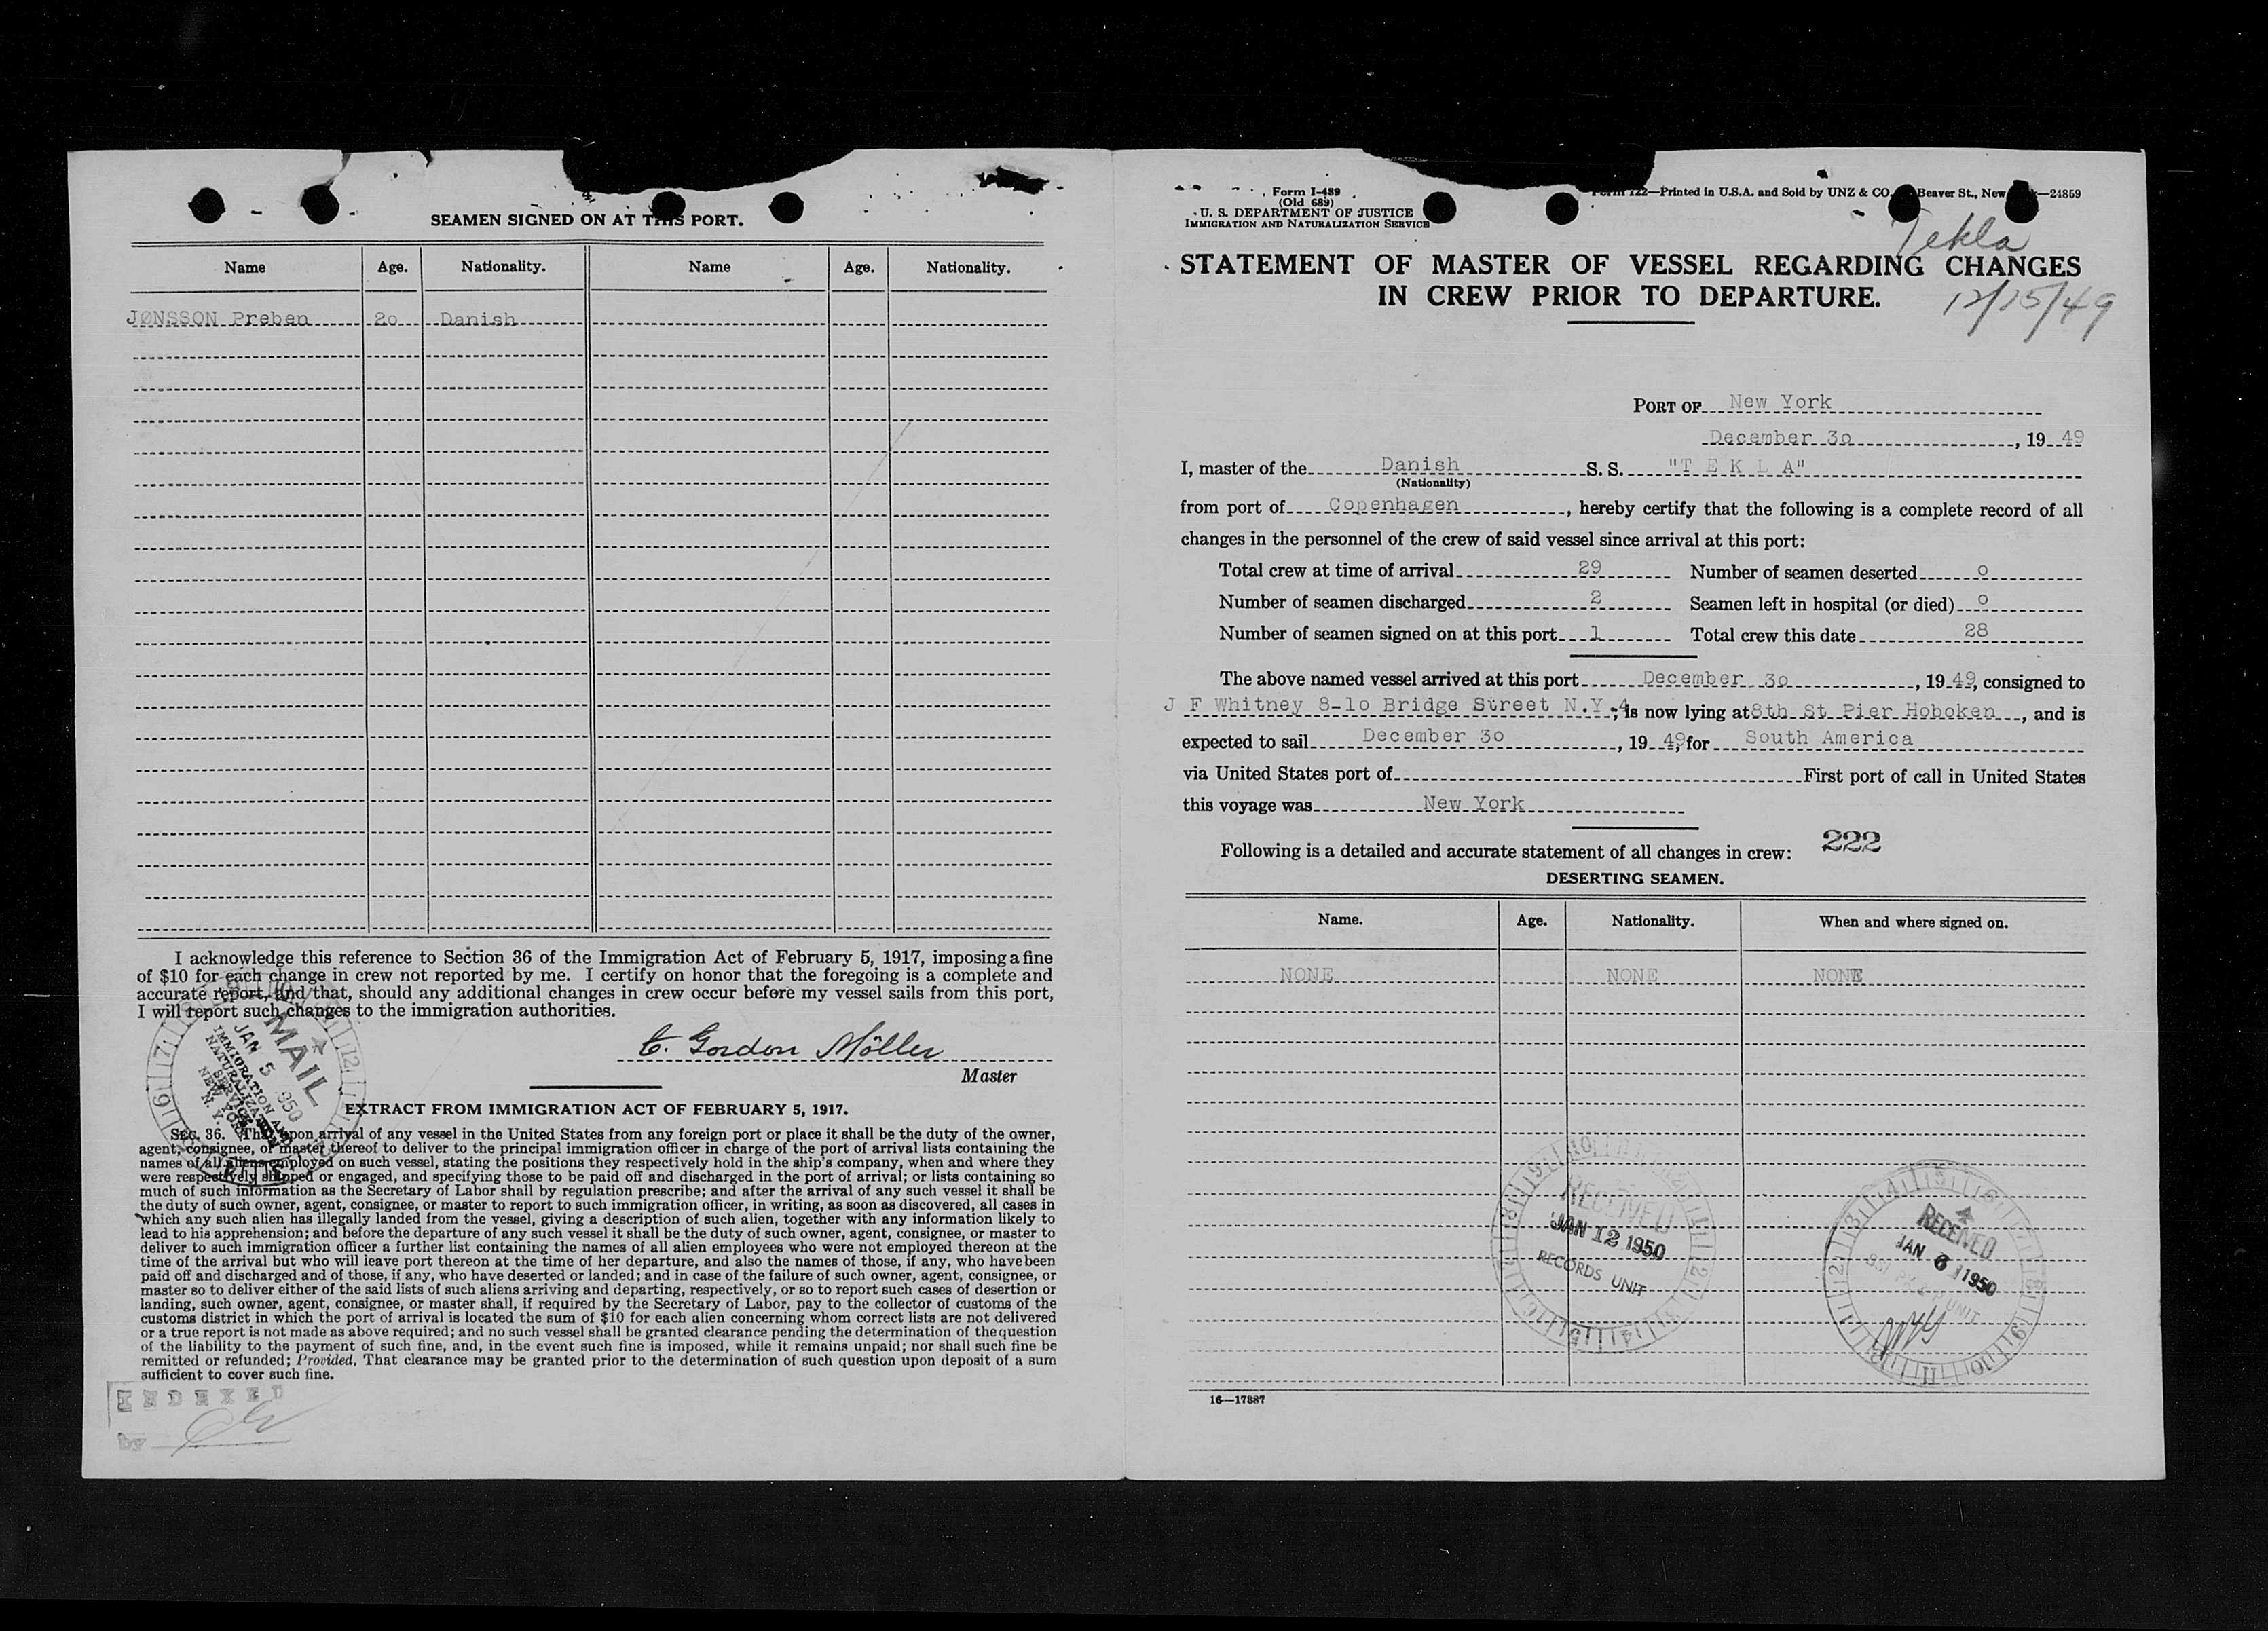 4
SEAMEN SIGNED ON AT THIS PORT.
Name Age. Nationality. Name Age. Nationality.
JØNSSON Preben 2o Danish
I acknowledge this reference to Section 36 of the Immigration Act of February 5, 1917, imposing a fine
of $10 for each change in crew not reported by me. I certify on honor that the foregoing is a complete and
accurate report, and that, should any additional changes in crew occur before my vessel sails from this port,
I will report such changes to the immigration authorities.
C. Gordon Möller
Master
MAIL
JAN 5 1950
IMMIGRATION AND
NATURALIZATION
SERVICE
NEW YORK
N. Y.
EXTRACT FROM IMMIGRATION ACT OF FEBRUARY 5, 1917.
SEC. 36. That upon arrival of any vessel in the United States from any foreign port or place it shall be the duty of the owner,
agent, consignee, or master thereof to deliver to the principal immigration officer in charge of the port of arrival lists containing the
names of all aliens employed on such vessel, stating the positions they respectively hold in the ship's company, when and where they
were respectively shipped or engaged, and specifying those to be paid off and discharged in the port of arrival; or lists containing so
much of such information as the Secretary of Labor shall by regulation prescribe; and after the arrival of any such vessel it shall be
the duty of such owner, agent, consignee, or master to report to such immigration officer, in writing, as soon as discovered, all cases in
which any such alien has illegally landed from the vessel, giving a description of such alien, together with any information likely to
lead to his apprehension; and before the departure of any such vessel it shall be the duty of such owner, agent, consignee, or master to
deliver to such immigration officer a further list containing the names of all alien employees who were not employed thereon at the
time of the arrival but who will leave port thereon at the time of her departure, and also the names of those, if any, who have been
paid off and discharged and of those, if any, who have deserted or landed; and in case of the failure of such owner, agent, consignee, or
master so to deliver either of the said lists of such aliens arriving and departing, respectively, or so to report such cases of desertion or
landing, such owner, agent, consignee, or master shall, if required by the Secretary of Labor, pay to the collector of customs of the
customs district in which the port of arrival is located the sum of $10 for each alien concerning whom correct lists are not delivered
or a true report is not made as above required; and no such vessel shall be granted clearance pending the determination of the question
of the liability to the payment of such fine, and, in the event such fine is imposed, while it remains unpaid; nor shall such fine be
remitted or refunded; Provided, That clearance may be granted prior to the determination of such question upon deposit of a sum
sufficient to cover such fine.
INDEXED
by
Form I-489
(Old 689)
U. S. DEPARTMENT OF JUSTICE
IMMIGRATION AND NATURALIZATION SERVICE
Form 722—Printed in U.S.A. and Sold by UNZ & CO. Beaver St., New —24859
Tekla
STATEMENT OF MASTER OF VESSEL REGARDING CHANGES
IN CREW PRIOR TO DEPARTURE.
12/15/49
PORT OF New York
December 3o, 19 49
I, master of the Danish S. S. "T E K L A"
(Nationality)
from port of Copenhagen, hereby certify that the following is a complete record of all
changes in the personnel of the crew of said vessel since arrival at this port:
Total crew at time of arrival 29 Number of seamen deserted o
Number of seamen discharged 2 Seamen left in hospital (or died) o
Number of seamen signed on at this port 1 Total crew this date 28
The above named vessel arrived at this port December 3o, 19 49, consigned to
J F Whitney 8-1o Bridge Street N.Y. 4, is now lying at 8th St Pier Hoboken, and is
expected to sail December 3o, 19 49, for South America
via United States port of First port of call in United States
this voyage was New York
Following is a detailed and accurate statement of all changes in crew: 222
DESERTING SEAMEN.
Name. Age. Nationality. When and where signed on.
NONE NONE NONE
RECEIVED
JAN 12 1950
RECORDS UNIT
RECEIVED
JAN 6 1950
UNIT
16—17387